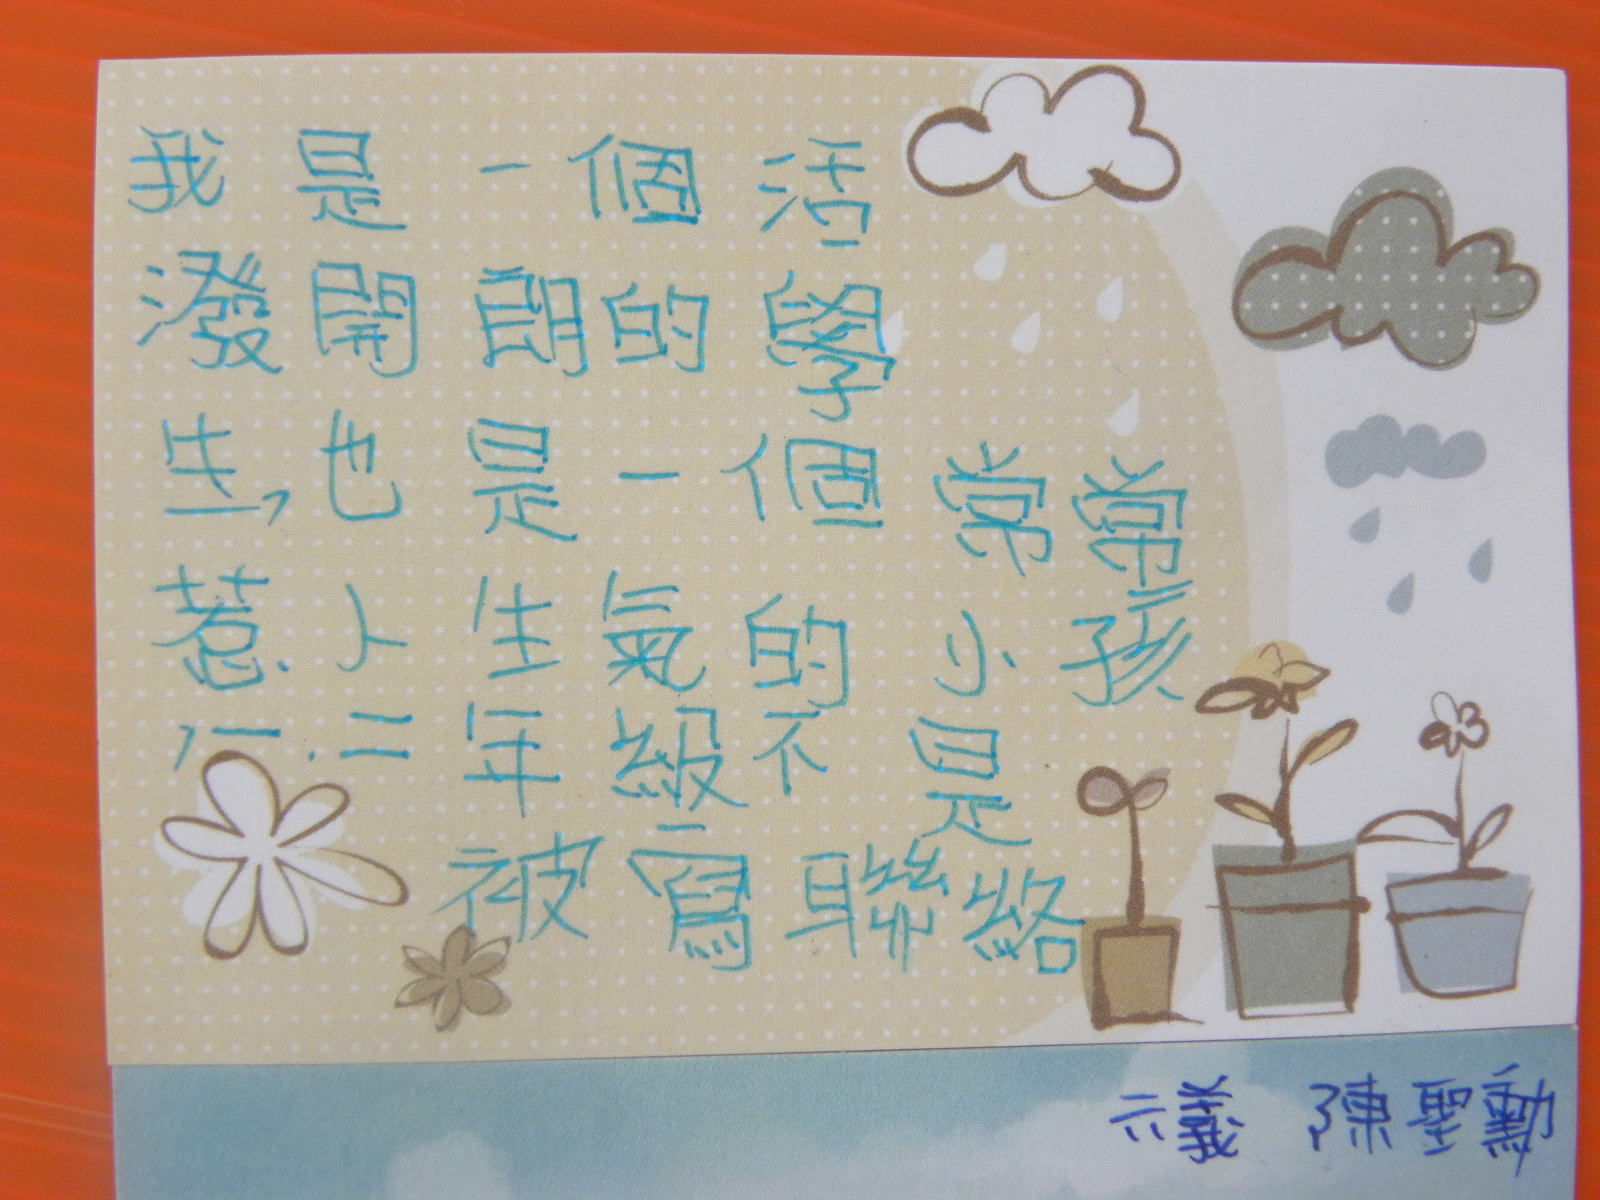 我是一個活
潑開朗的學
生,也是一個常常
惹人生氣的小孩
,一.二年級不是
被寫聯絡
六義 陳聖勳